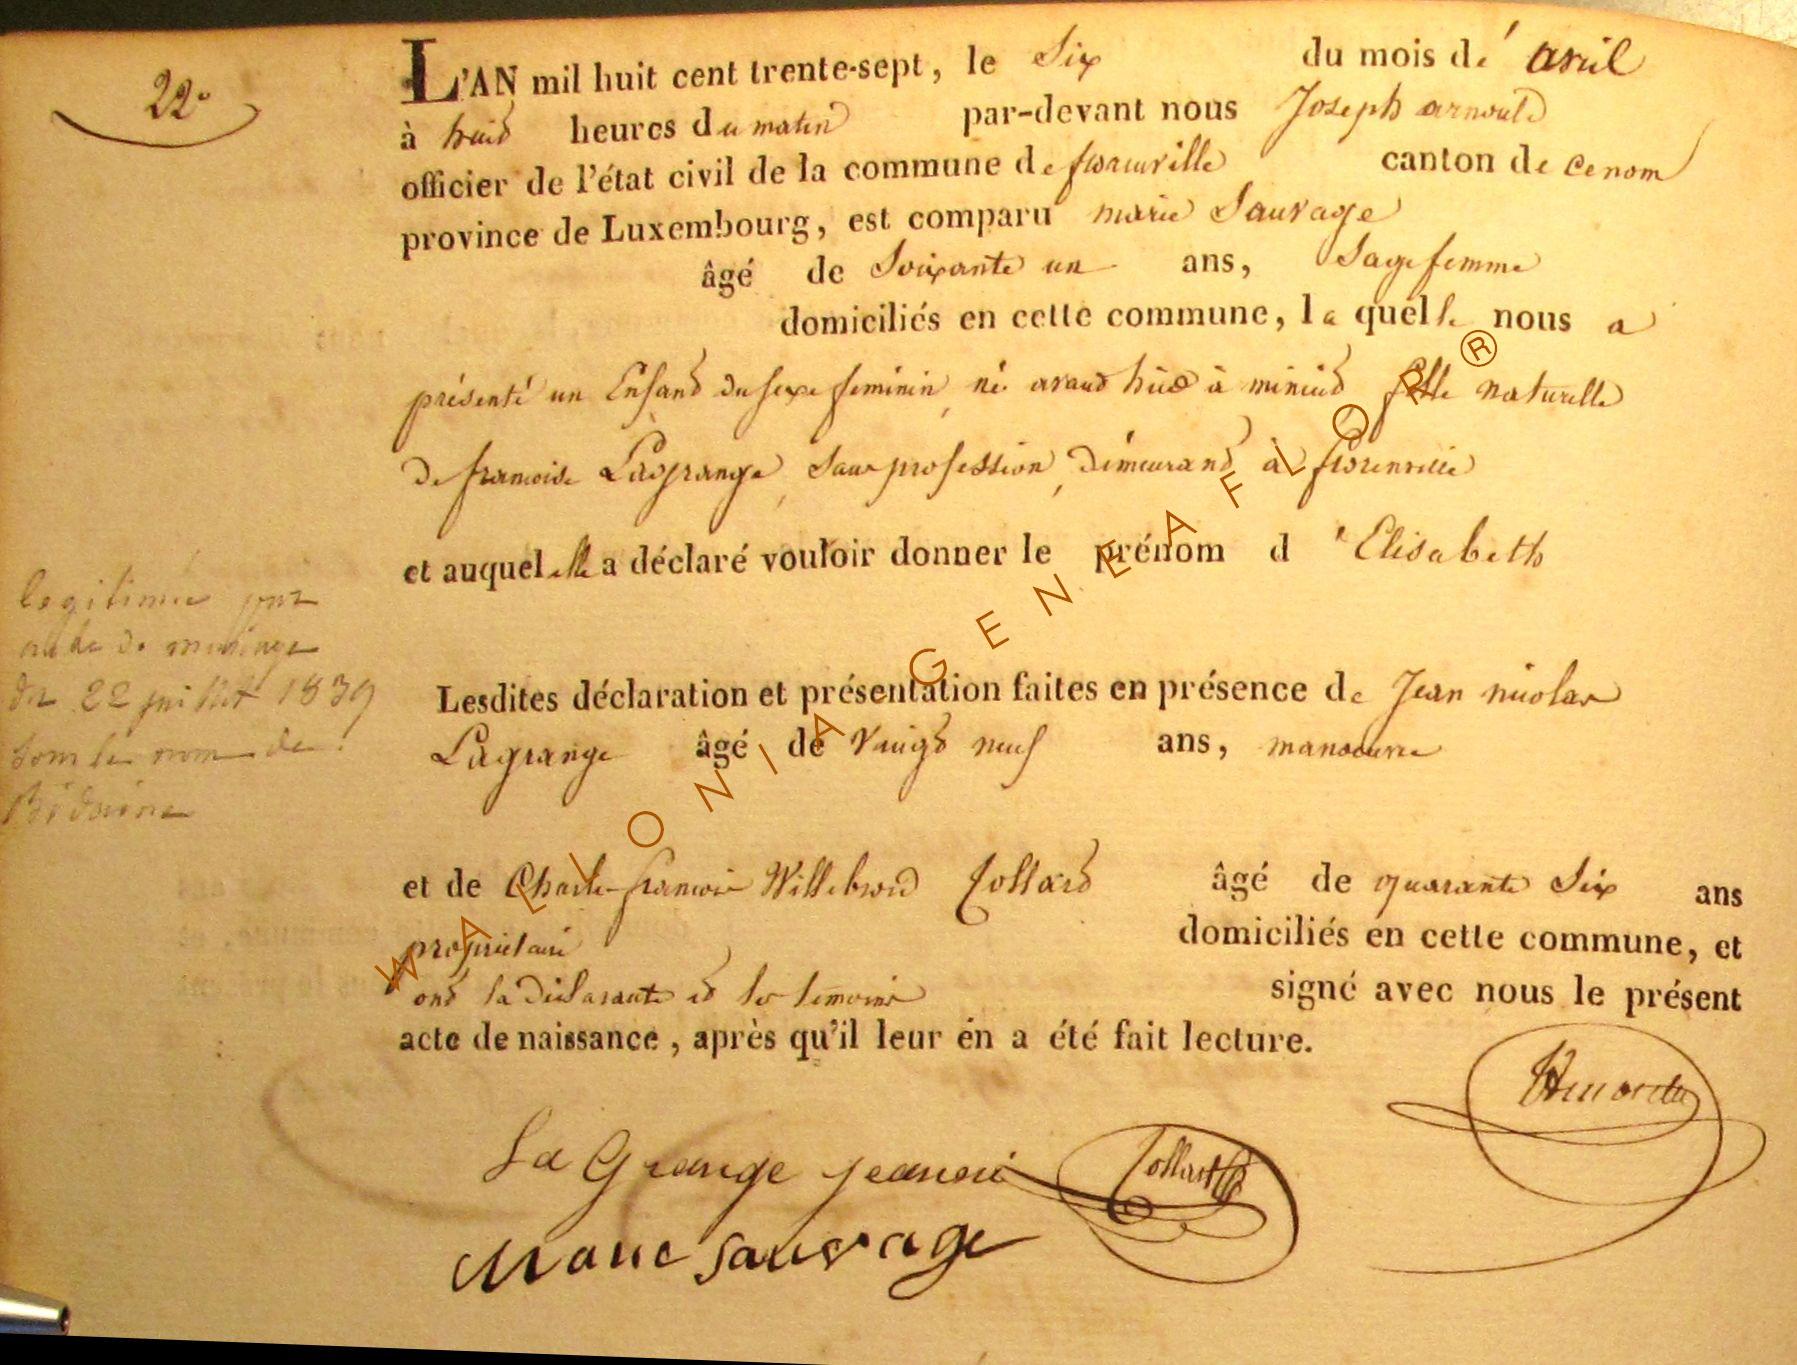 22e
L'AN mil huit cent trente-sept, le Six du mois de avril
à huit heures du matin par-devant nous Joseph arnould
officier de l'état civil de la commune de florenville canton de ce nom
province de Luxembourg, est comparu marie Sauvage
âgé de Soixante un ans, Sage femme
domiciliés en cette commune, la quelle nous a
présenté un Enfant du sexe feminin, né avant hier à minuit fille naturelle
de francoise Lagrange, sans profession, demeurant à florenville
et auquel elle a déclaré vouloir donner le prénom d'Elisabeth
legitimée par
acte de mariage
du 22 juillet 1839
sous le nom de
Lesdites déclaration et présentation faites en présence de Jean nicolas
Lagrange âgé de vingt neuf ans, manoeuvre
et de Charle-francois Willebrord Collard âgé de quarante Six ans
propriétaire domiciliés en cette commune, et
ont la déclarante et les temoins signé avec nous le présent
acte de naissance, après qu'il leur en a été fait lecture.
La Grange jean Collard
Marie Sauvage
WALLONIA GENEAFLOR ®